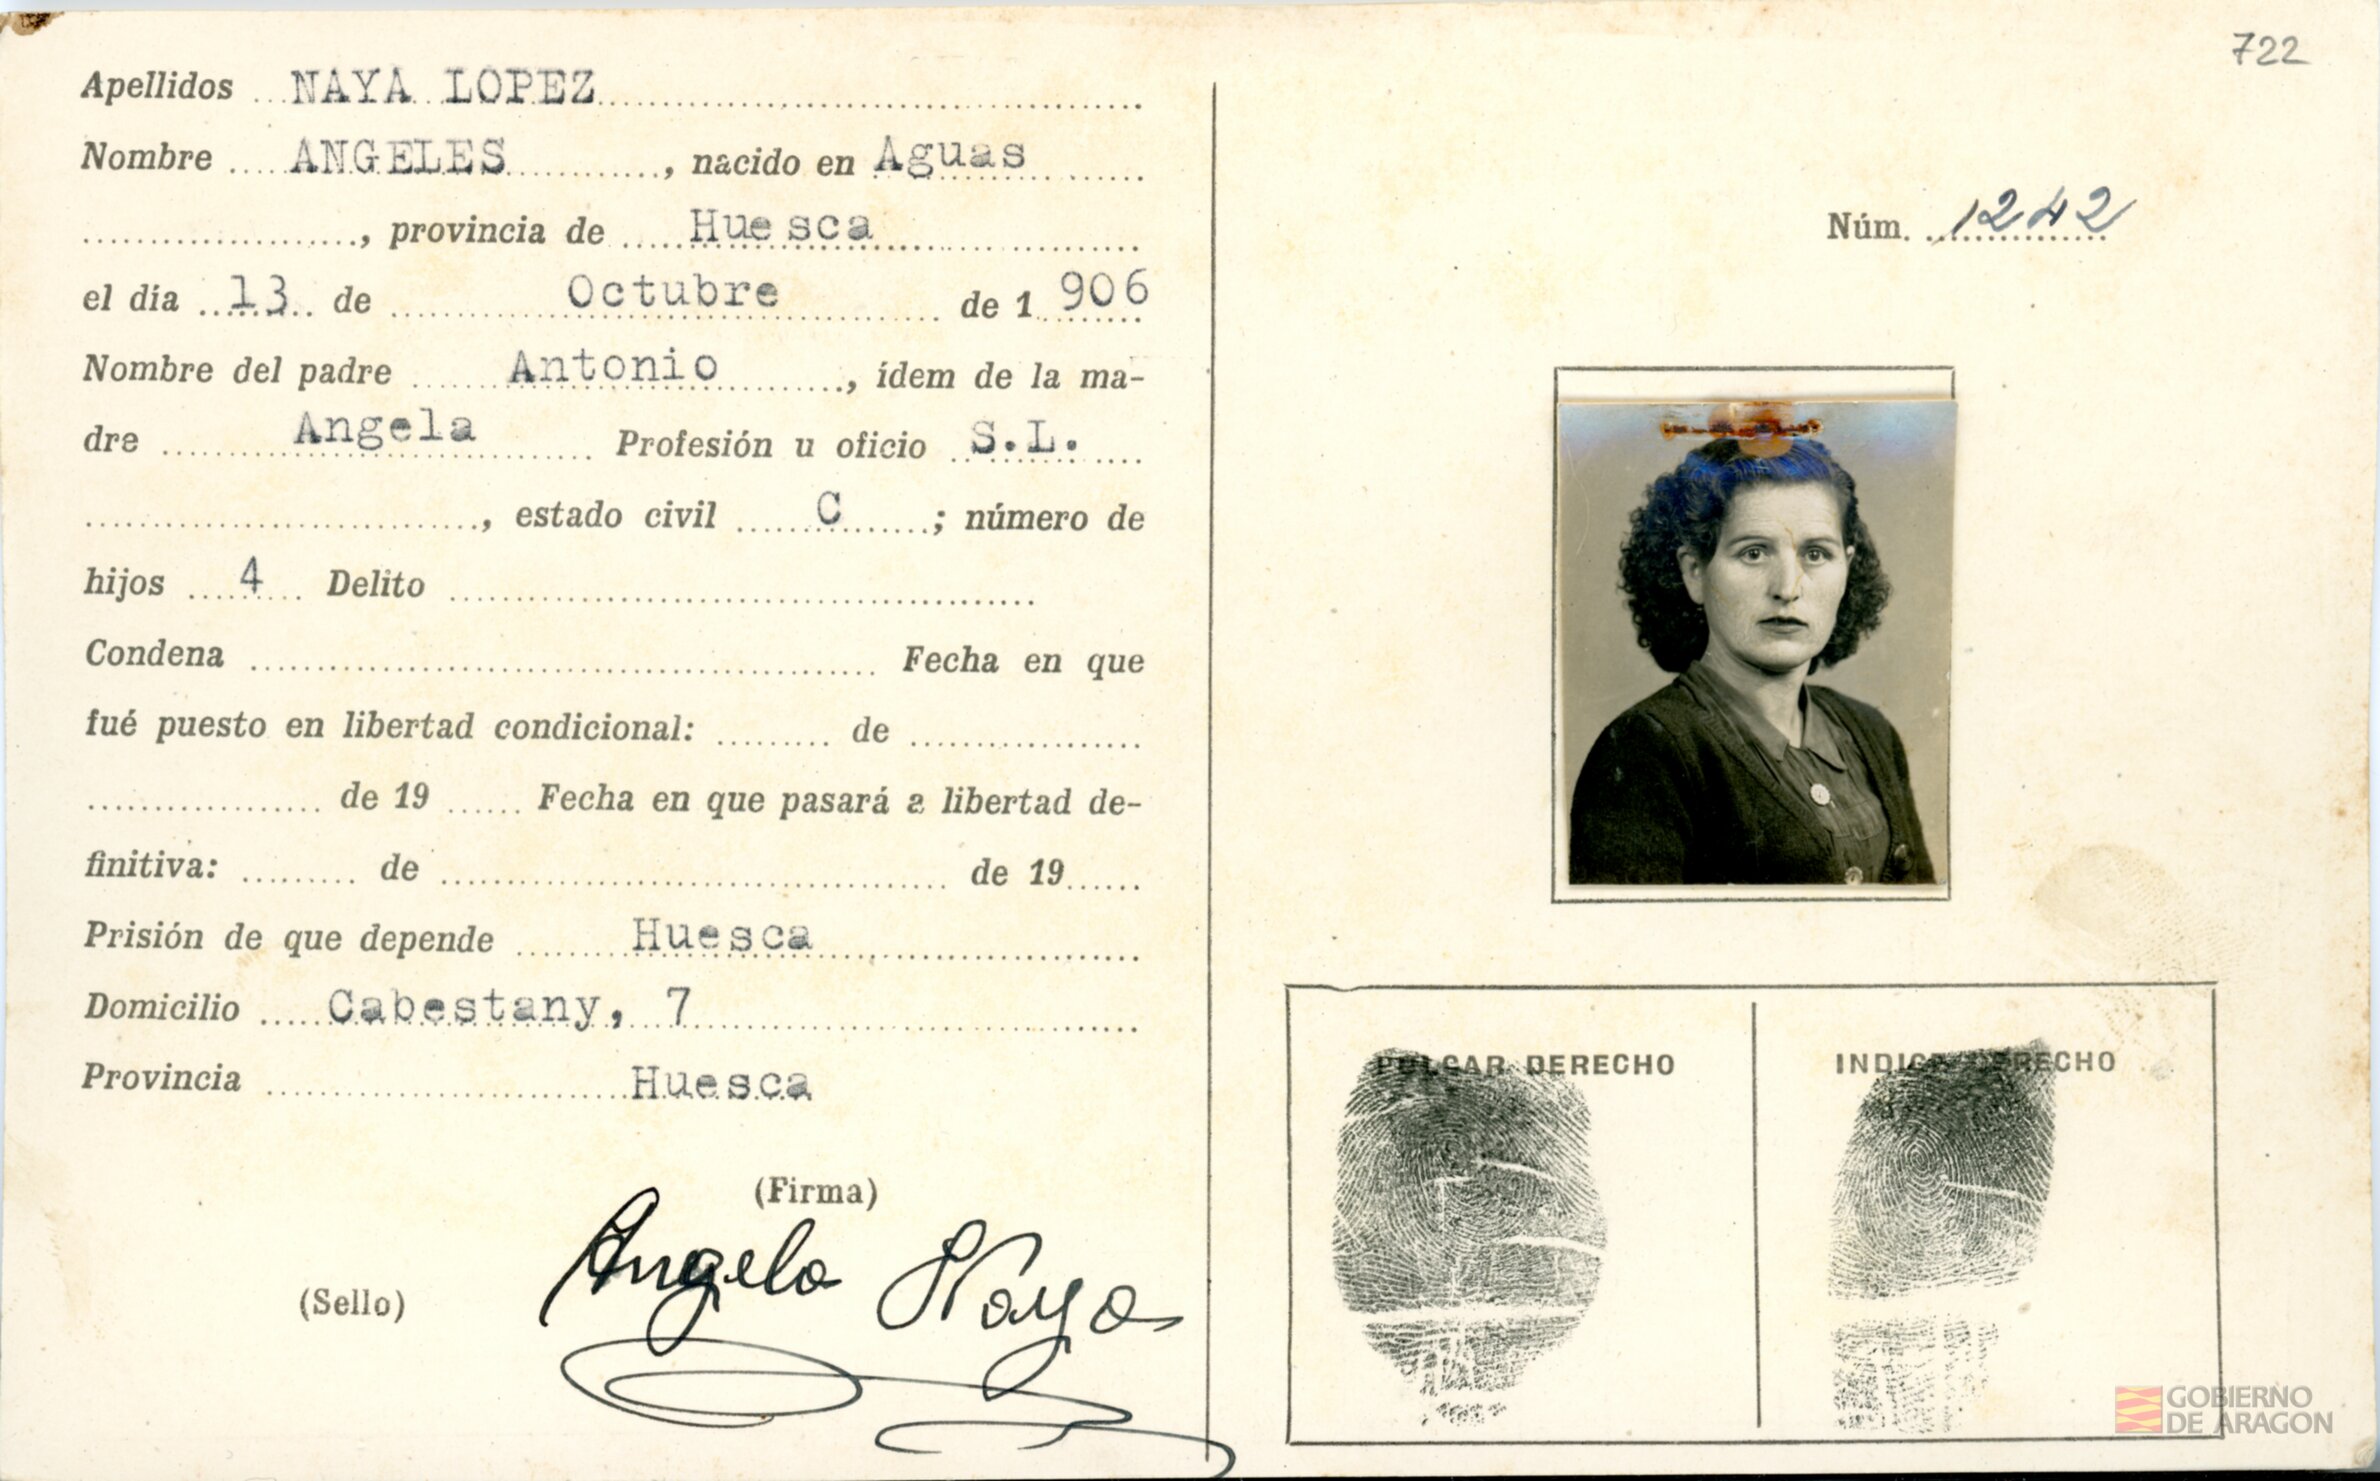 722
Apellidos NAYA LOPEZ
Nombre ANGELES, nacido en Aguas
, provincia de Huesca
el día 13 de Octubre de 1 906
Nombre del padre Antonio, ídem de la ma-
dre Angela Profesión u oficio S.L.
, estado civil C; número de
hijos 4 Delito
Condena Fecha en que
fué puesto en libertad condicional: de
de 19 Fecha en que pasará a libertad de-
finitiva: de de 19
Prisión de que depende Huesca
Domicilio Cabestany, 7
Provincia Huesca
(Firma)
Angela Naya
(Sello)
Núm. 1242
PULGAR DERECHO
INDICE DERECHO
GOBIERNO
DE ARAGON